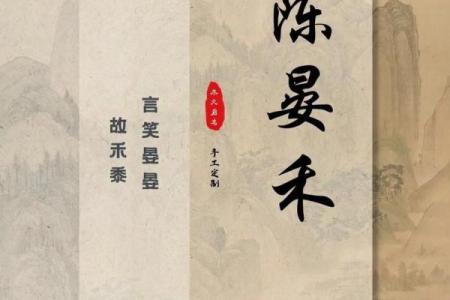 陈晏禾
手工定制
言笑晏晏
故禾黍